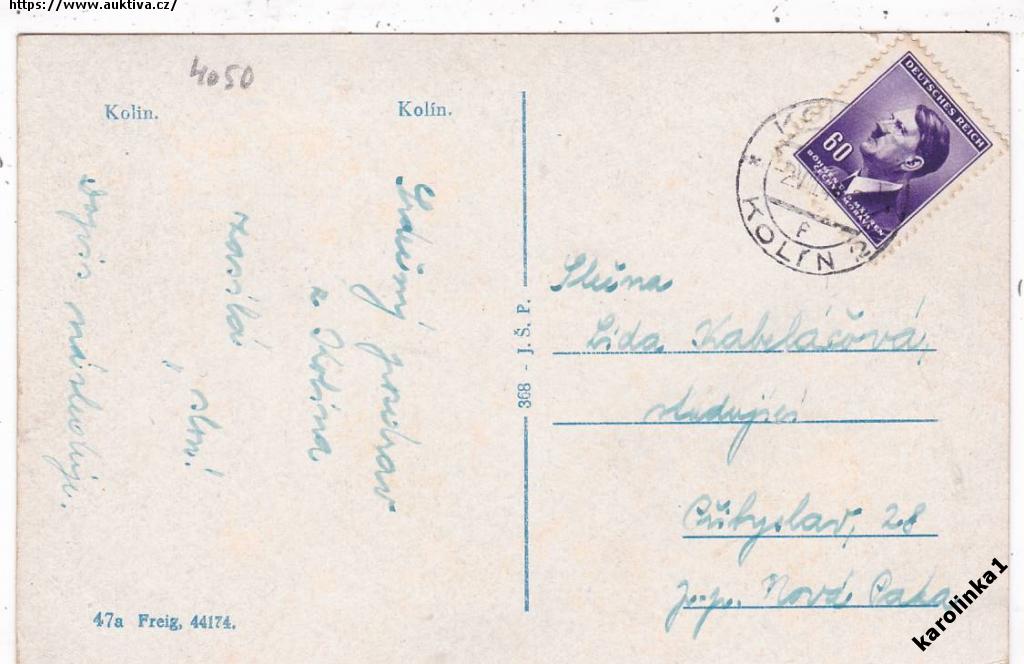 https://www.auktiva.cz/
4050
Kolin.
Kolín.
Srdečný pozdrav
z Kolína
zasílá
Dopis následuje.
368 - J. Š. P.
DEUTSCHES REICH
60
BÖHMEN UND MÄHREN
ČECHY A MORAVA
KOLÍN 2
Slečna
Lída Kabeláčová,
studující
28
p.p. Nová Paka
47a Freig, 44174.
karolinka1